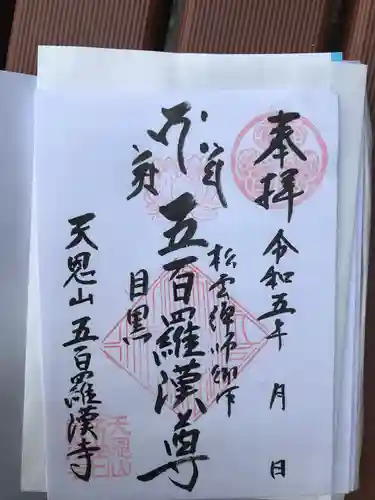 奉拝
令和五年 月 日
松雲禅師御作
五百羅漢尊
目黒
天恩山五百羅漢寺